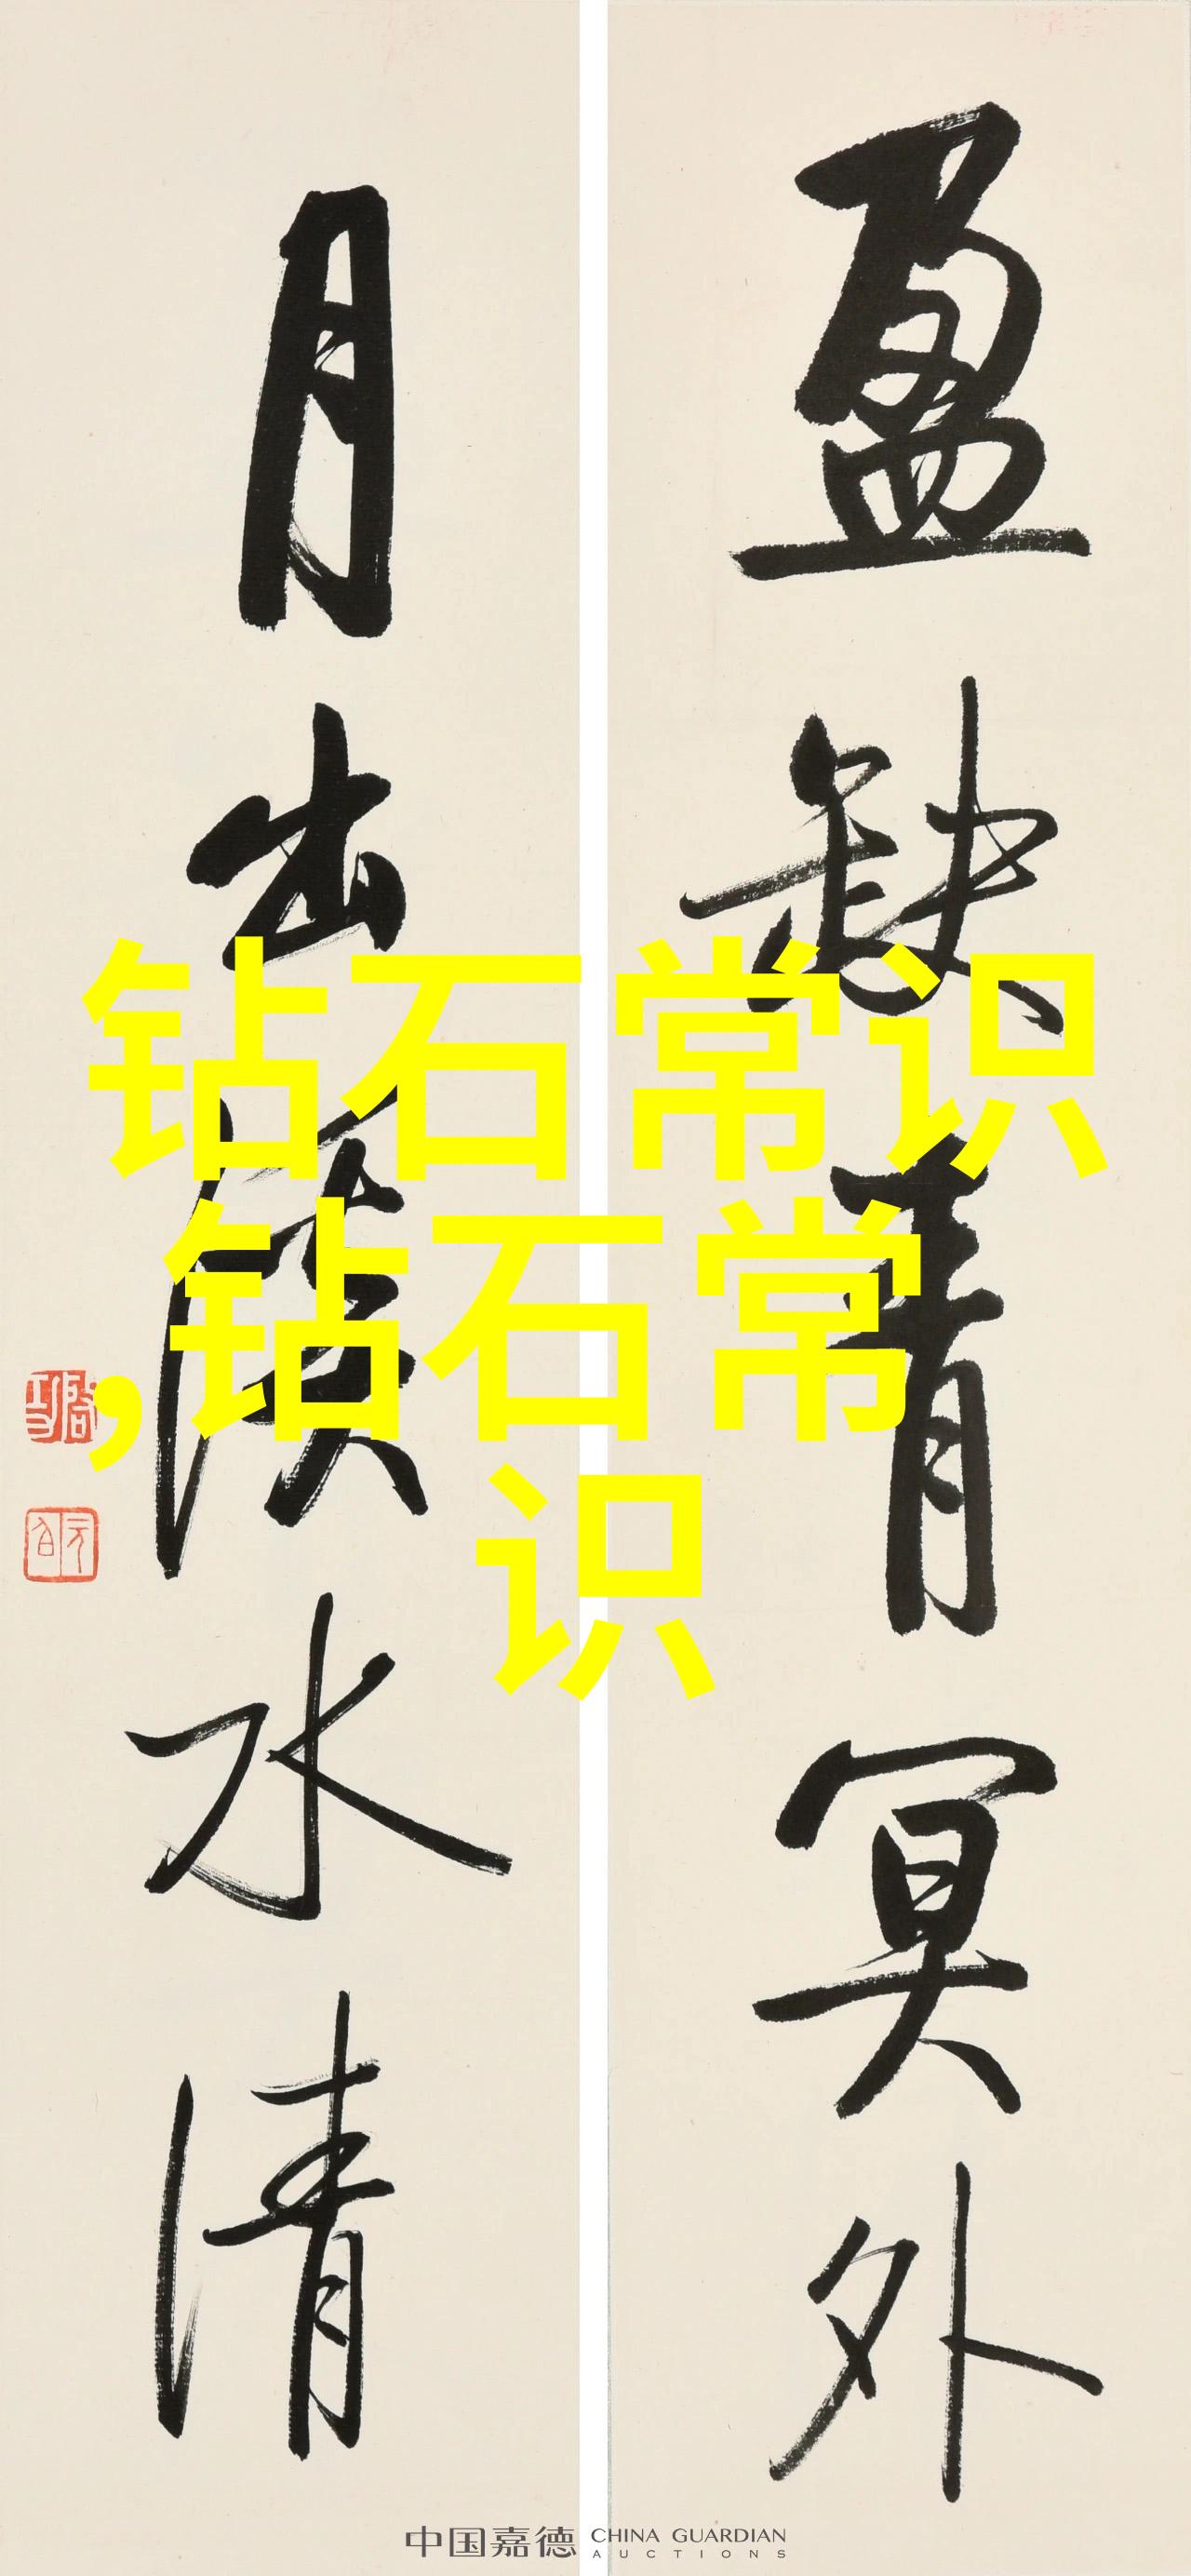 盈缺青冥外
月出淡水清
钻石常识
,钻石常
识
中国嘉德 CHINA GUARDIAN
AUCTIONS